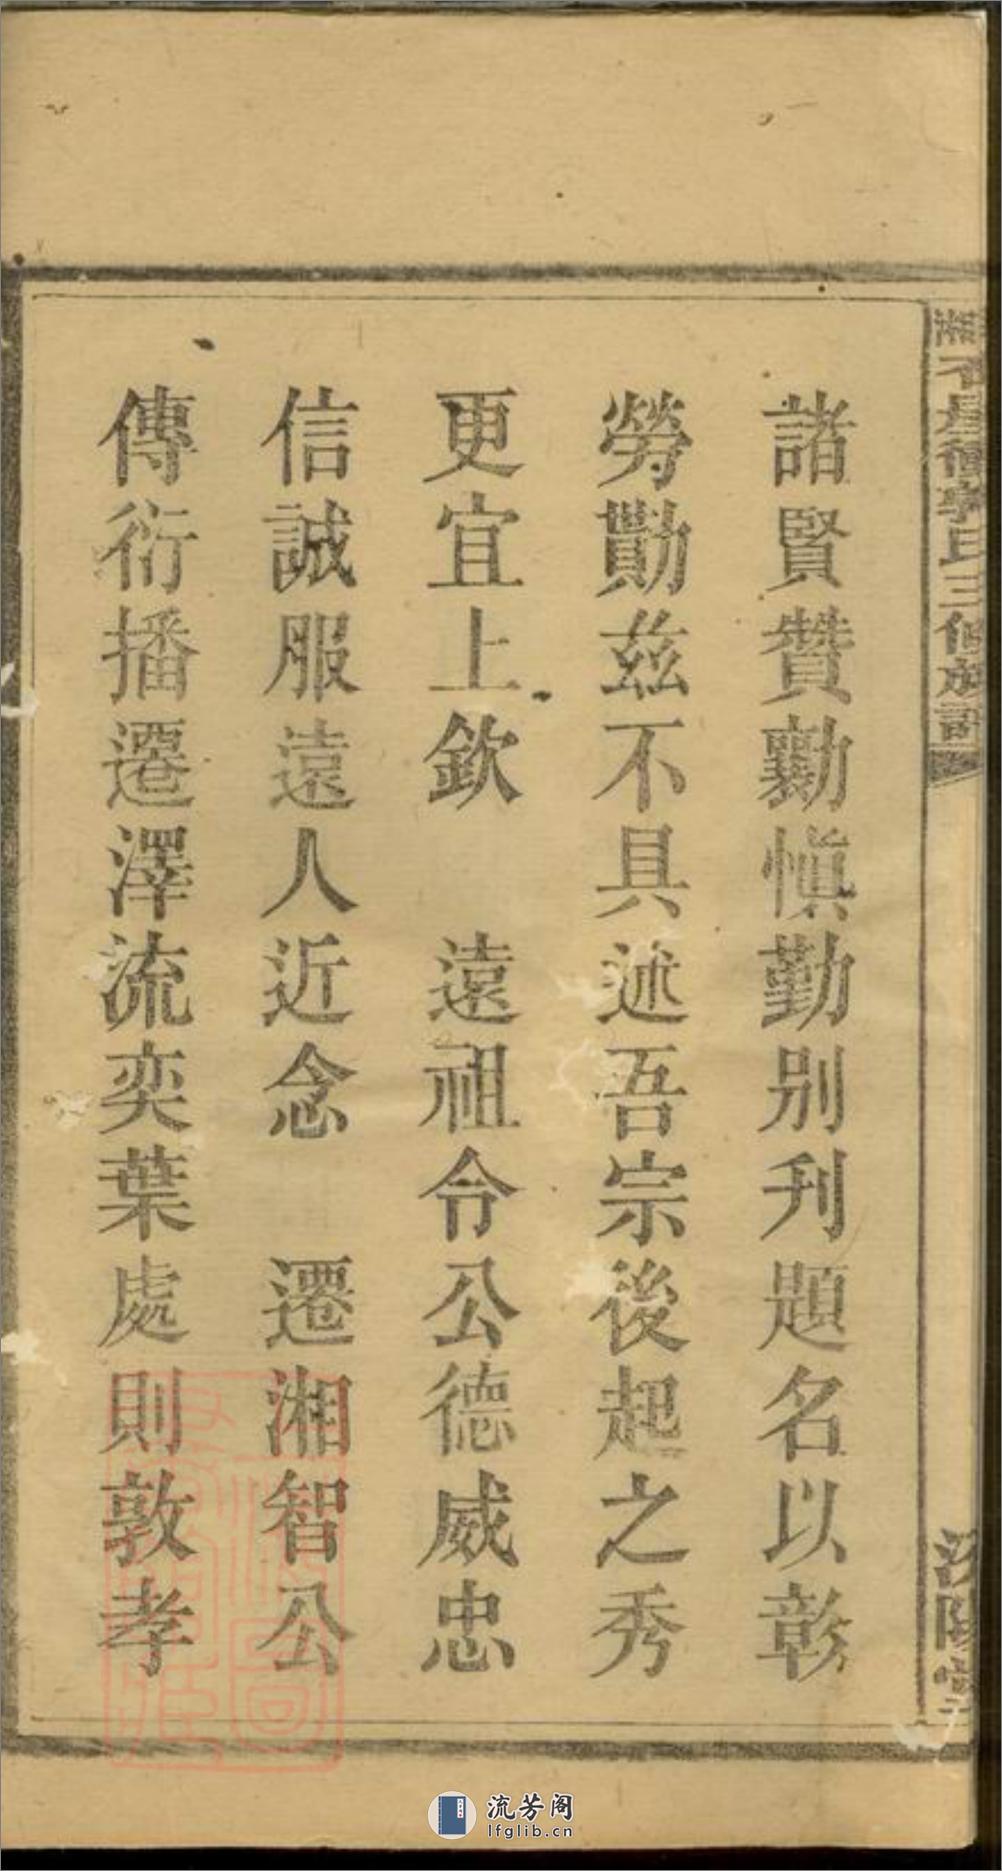 諸賢贊勷慎勤別刋題名以彰
勞勩茲不具述吾宗後起之秀
更宜上欽　遠祖令公德威忠
信誠服遠人近念　遷湘智公
傳衍播遷澤流奕葉處則敦孝
氏三修族譜
流芳阁
lfglib.cn